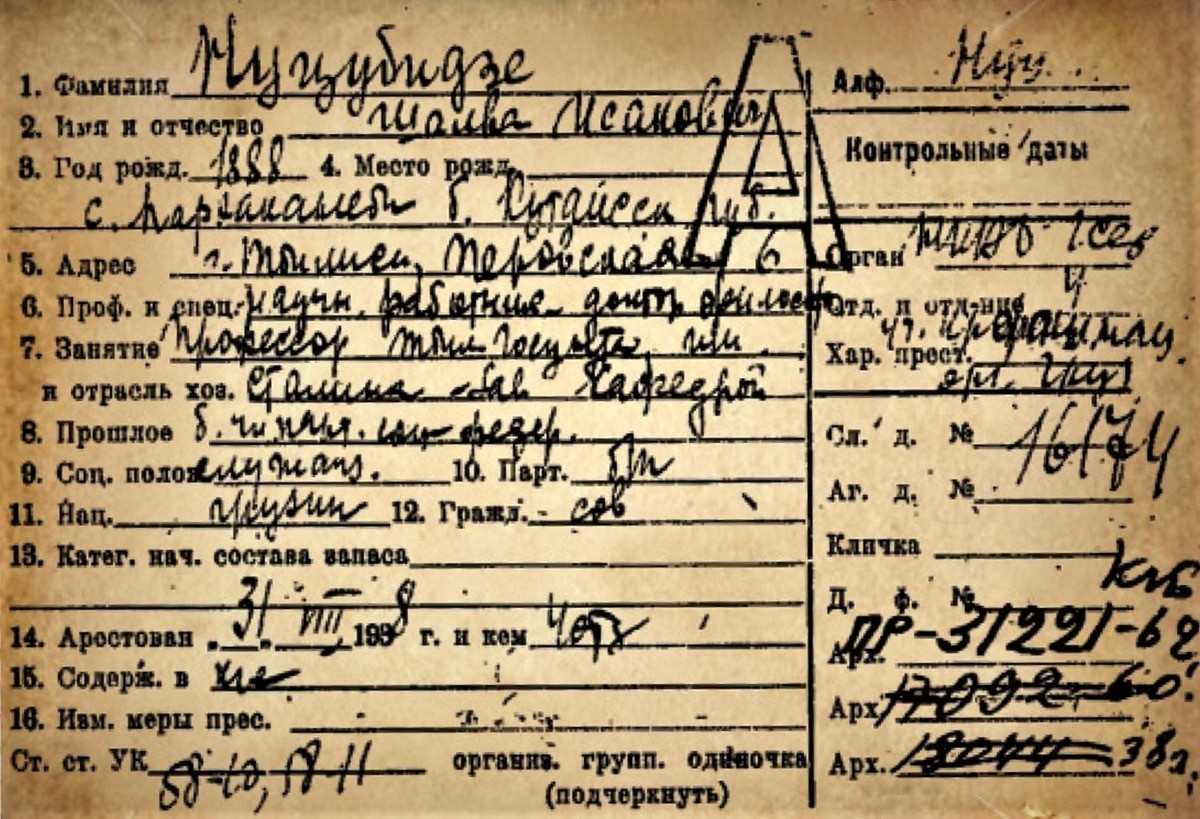 1. Фамилия Нуцубидзе
2. Имя и отчество Шалва Исакович
3. Год рожд. 1888 4. Место рожд.
б. Кутаисск. губ.
5. Адрес г. Тбилиси, Перовская 6
6. Проф. и спец. научн. работник доктор филос
7. Занятие Профессор
и отрасль хоз. Сталина зав Кафедрой
8. Прошлое б. чл. парт. соц. федер.
9. Соц. полож служащ. 10. Парт. б/п
11. Нац. грузин 12. Гражд. сов
13. Катег. нач. состава запаса
14. Арестован 31 VIII 1938 г. и кем
15. Содерж. в
16. Изм. меры прес.
Ст. ст. УК 58-10, 58-11 организ. групп. одиночка
(подчеркнуть)
А
Алф. Нуц
Контрольные даты
Орган
Отд. и отд-ние 4
Хар. прест.
Сл. д. № 16174
Аг. д. №
Кличка
Д. ф. №
Арх. ПР-31221-62
Арх. 17092-60
Арх. 38г.